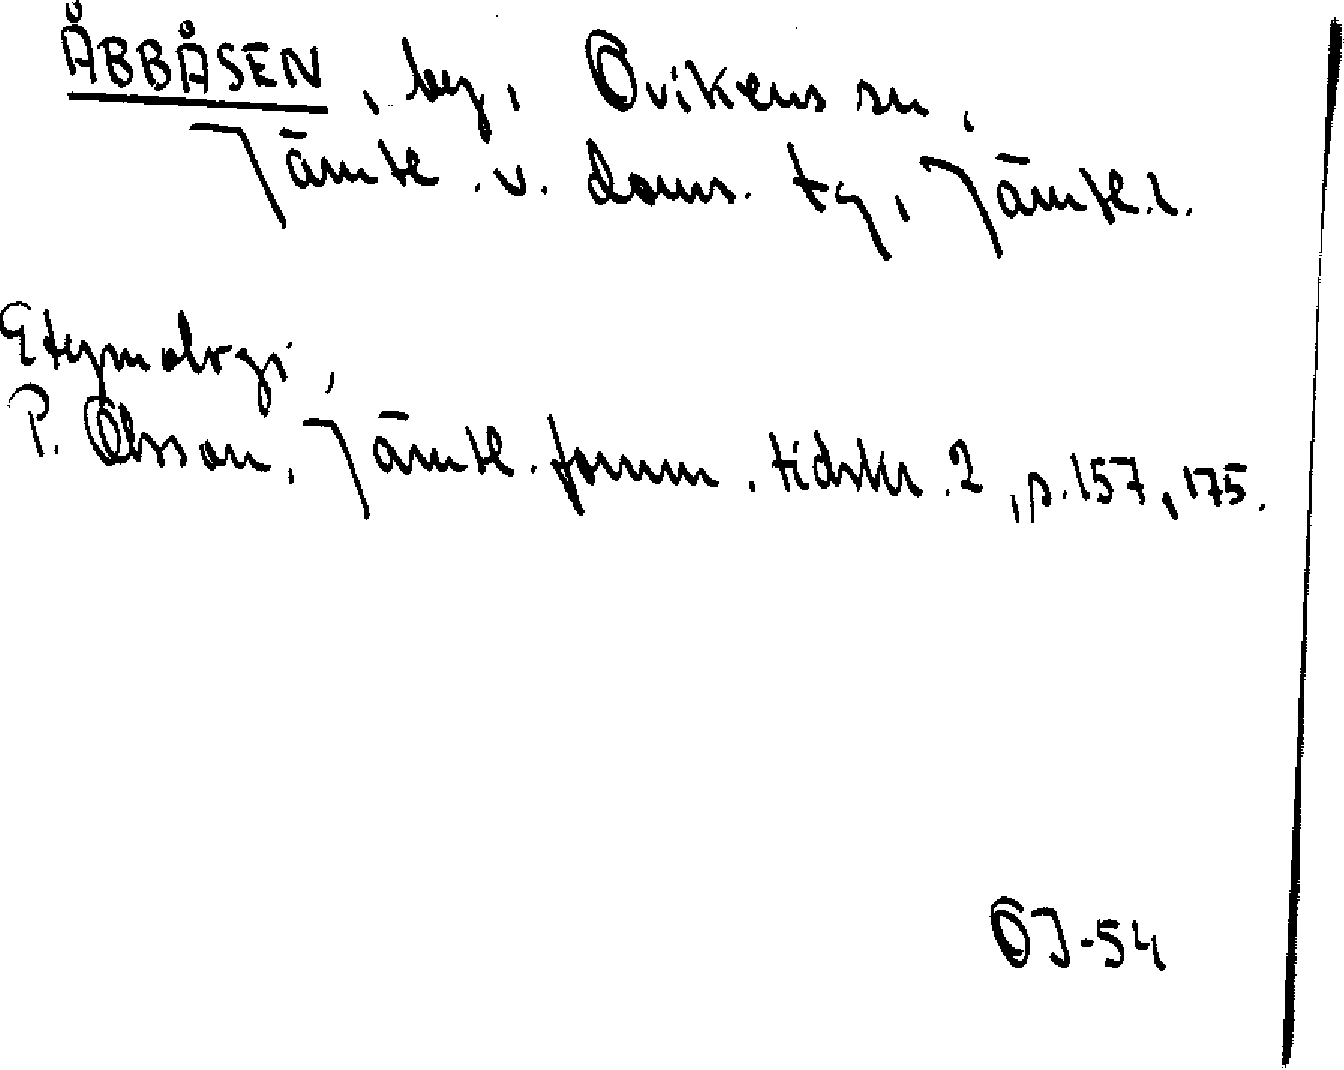 ÅBBÅSEN, by, Ovikens sn,
Jämtl. v. doms. tg, Jämtl. l.
Etymologi,
P. Olsson, Jämtl. fornm. tidskr. 2, p. 157, 175.
ÖJ-54